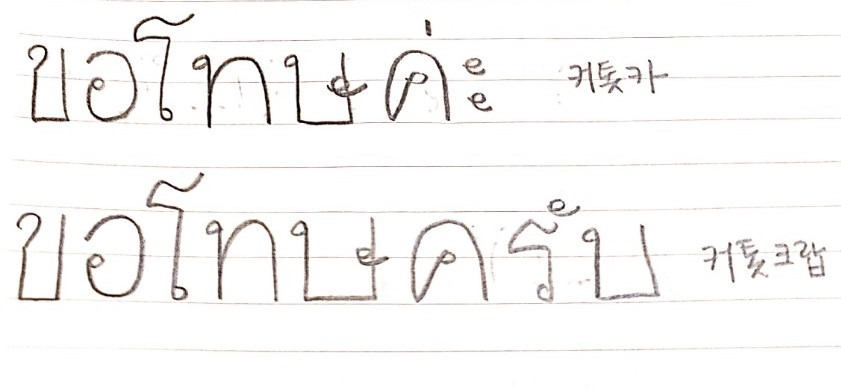 ขอโทษค่ะ 커톳카
ขอโทษครับ 커톳크랍